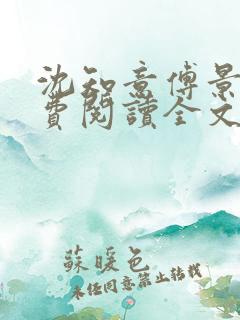 沈知意傅景
費閱讀全文
蘇暖色
未经同意禁止转载